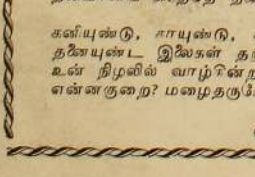 கனியுண்டு, காயுண்டு,
தனையுண்ட இலைகள்
உன் நிழலில் வாழ்கின்ற
என்னகுறை? மழைதரு